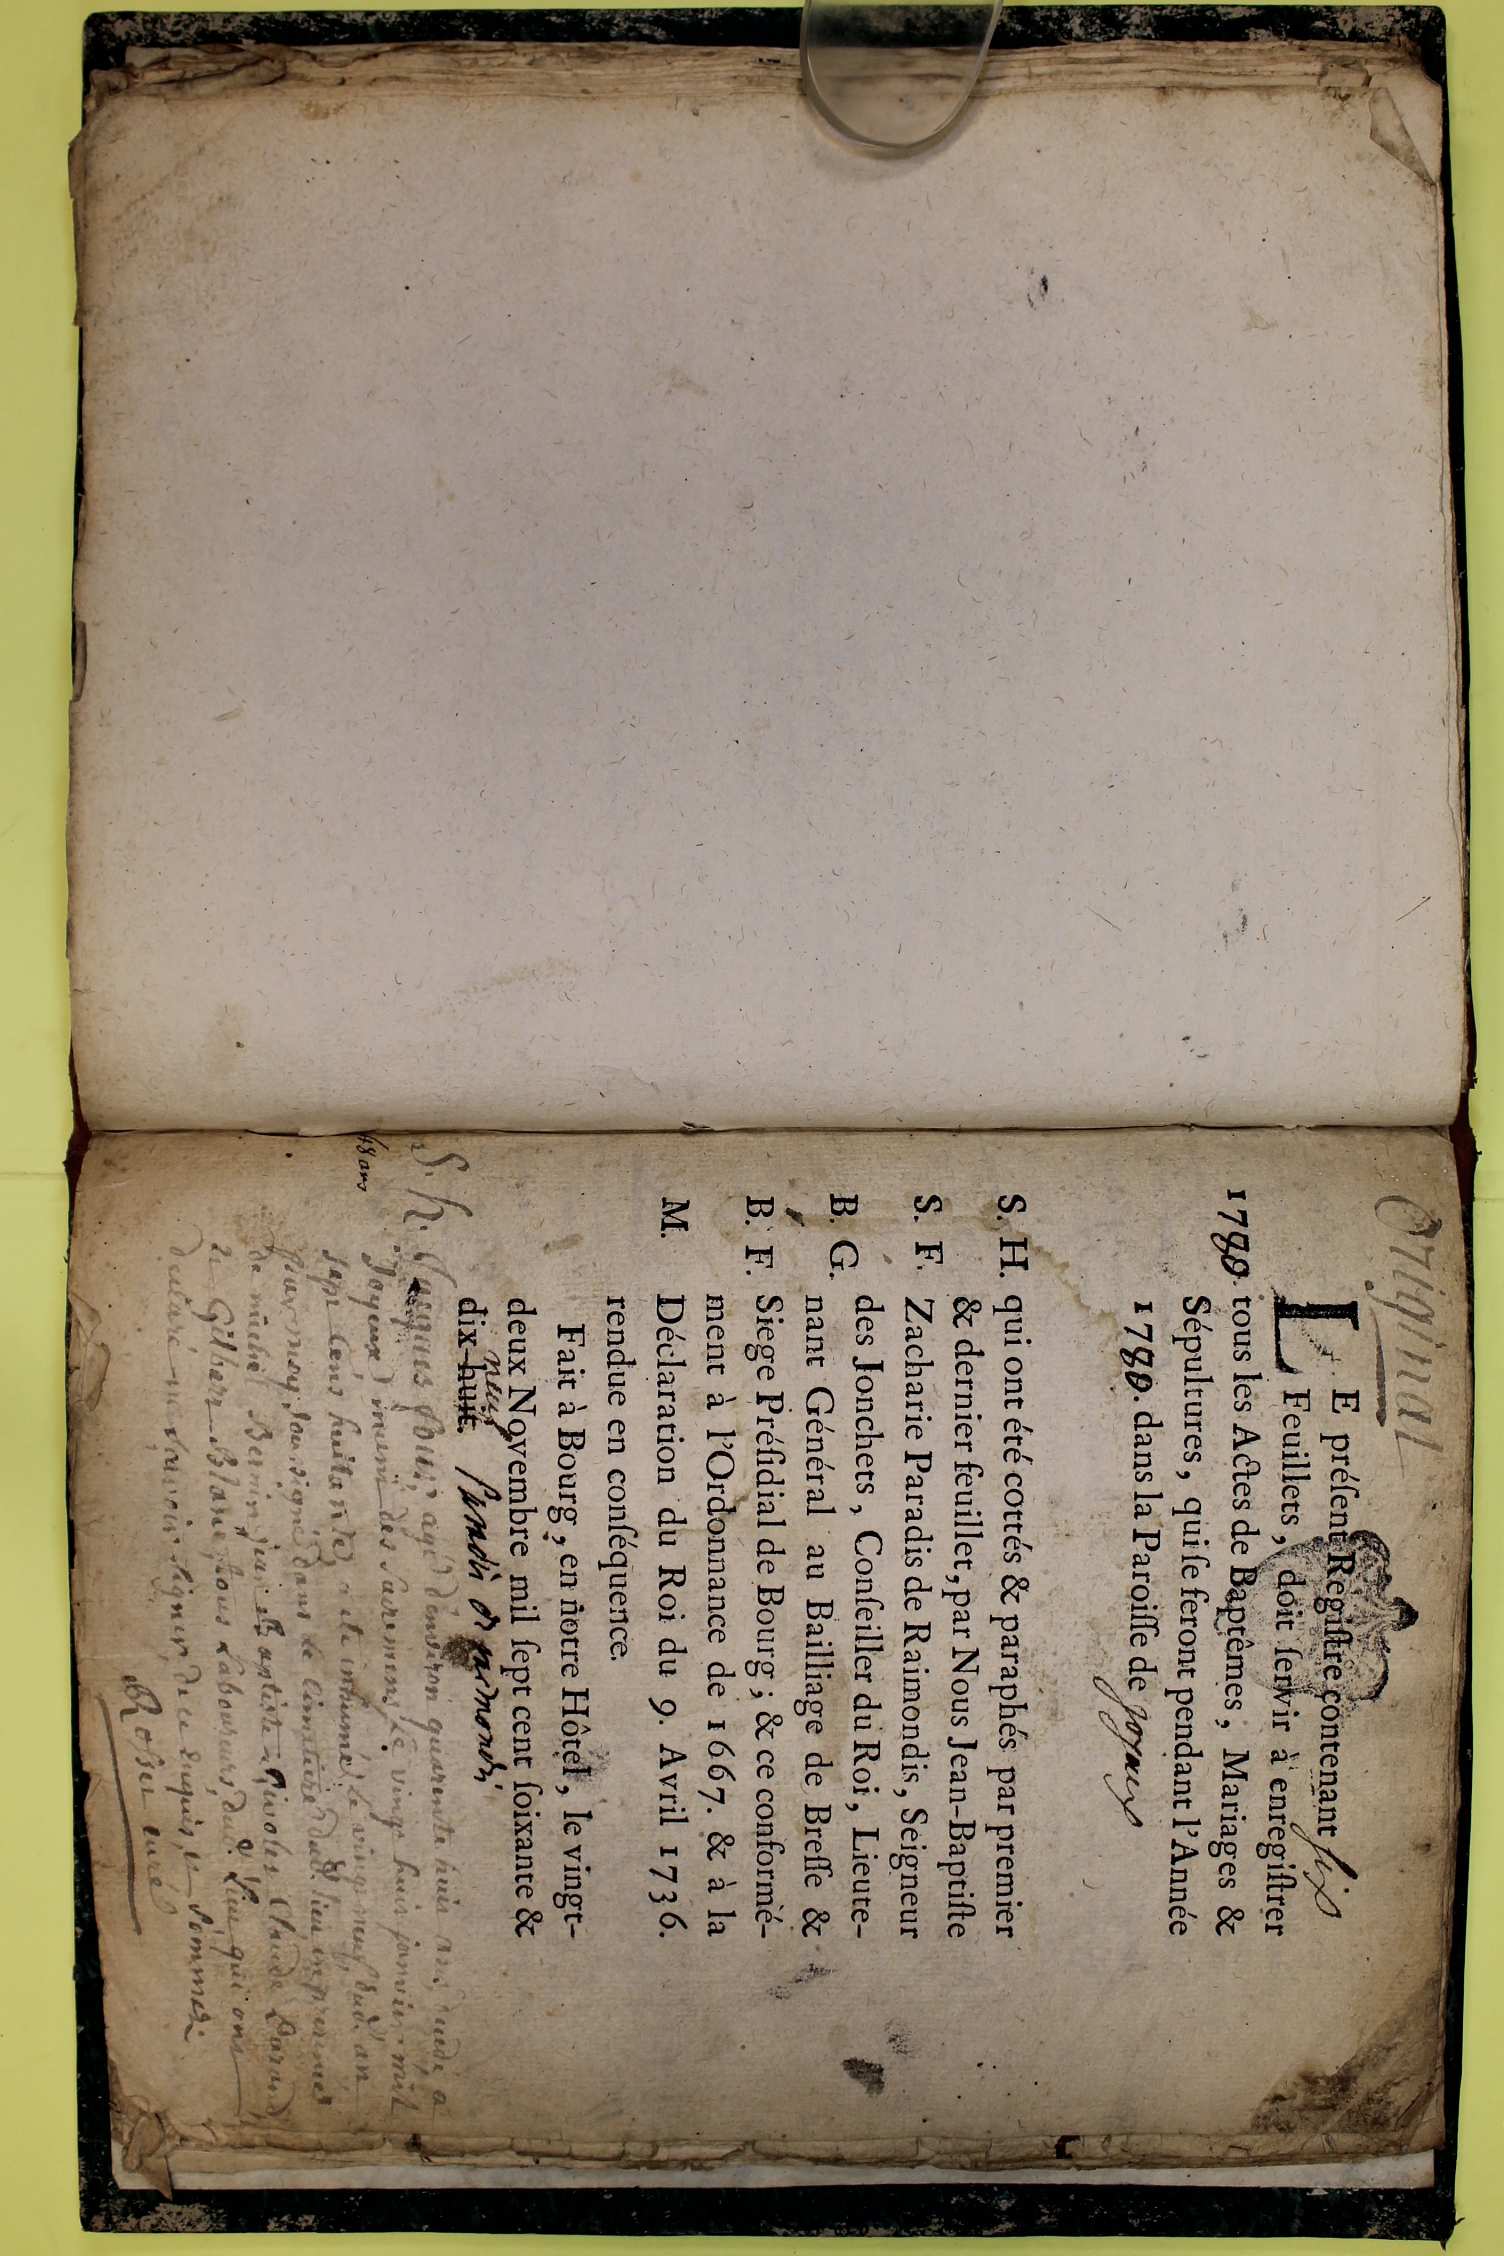 Original
LE préſent Regiſtre contenant six
Feuillets, doit ſervir à enregiſtrer
1780. tous les Actes de Baptêmes, Mariages &
Sépultures, qui ſe feront pendant l'Année
1780. dans la Paroiſſe de joyeux
S. H. qui ont été cottés & paraphés par premier
& dernier feuillet, par Nous Jean-Baptiſte
S. F. Zacharie Paradis de Raimondis, Seigneur
des Jonchets, Conſeiller du Roi, Lieute-
B. G. nant Général au Bailliage de Breſſe &
B. F. Siege Préſidial de Bourg; & ce conformé-
ment à l'Ordonnance de 1667. & à la
M. Déclaration du Roi du 9. Avril 1736.
rendue en conſéquence.
Fait à Bourg, en notre Hôtel, le vingt-
deux Novembre mil ſept cent ſoixante &
neuf
dix-huit.
S. h. Jacques agé d'environ quarante huit ans, décédé a
48 ans
Joyeux muni des sacremens le vingt huit janvier mil
sept cens huitante a été inhumé le vingt neuf dud. an
par moy soussigné dans le cimetière dud. lieu en présence
de miché Bernin, jean Baptiste rivolet, Claude
et Gilbert Blanc, tous Laboureurs dud. Lieu qui ont
déclaré ne sçavoir signer de ce enquis et sommés
Rosier curé